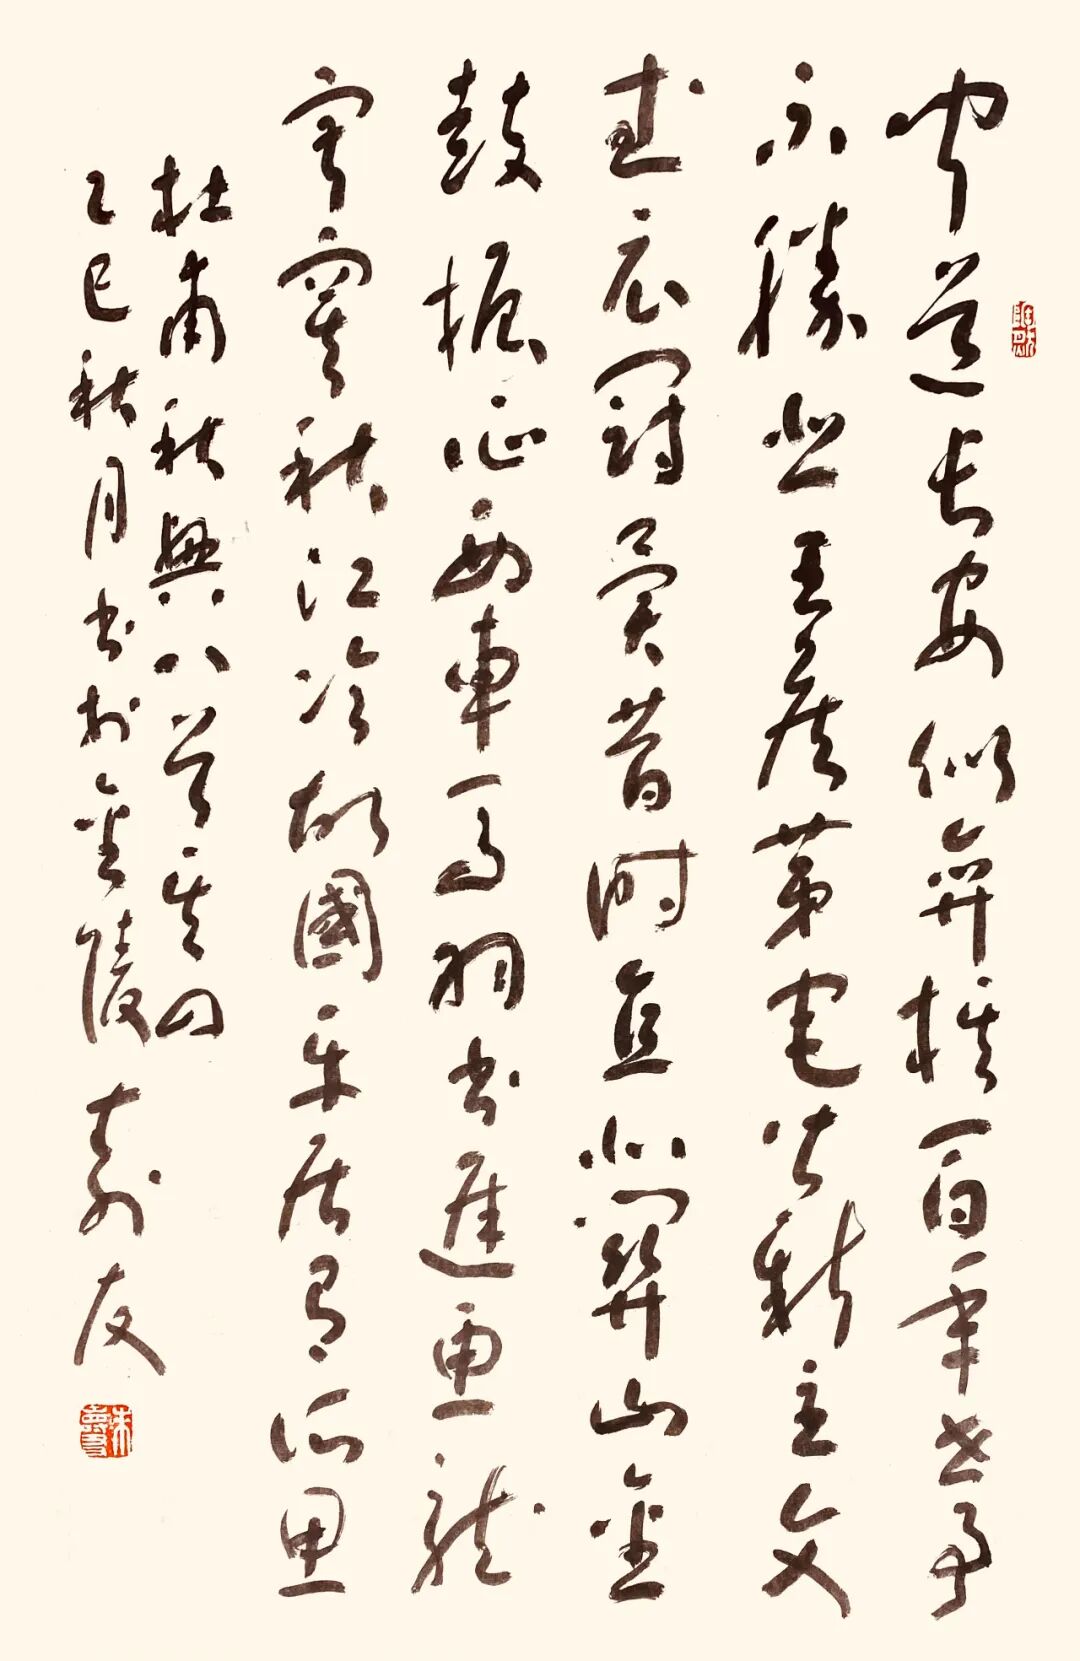 聞道長安似弈棋百年世事
不勝悲王侯第宅皆新主文
武衣冠異昔時直北關山金
鼓振征西車馬羽書遲魚龍
寂寞秋江冷故國平居有所思
杜甫秋興八首其四
乙巳秋月書於金陵壽友
朱壽友